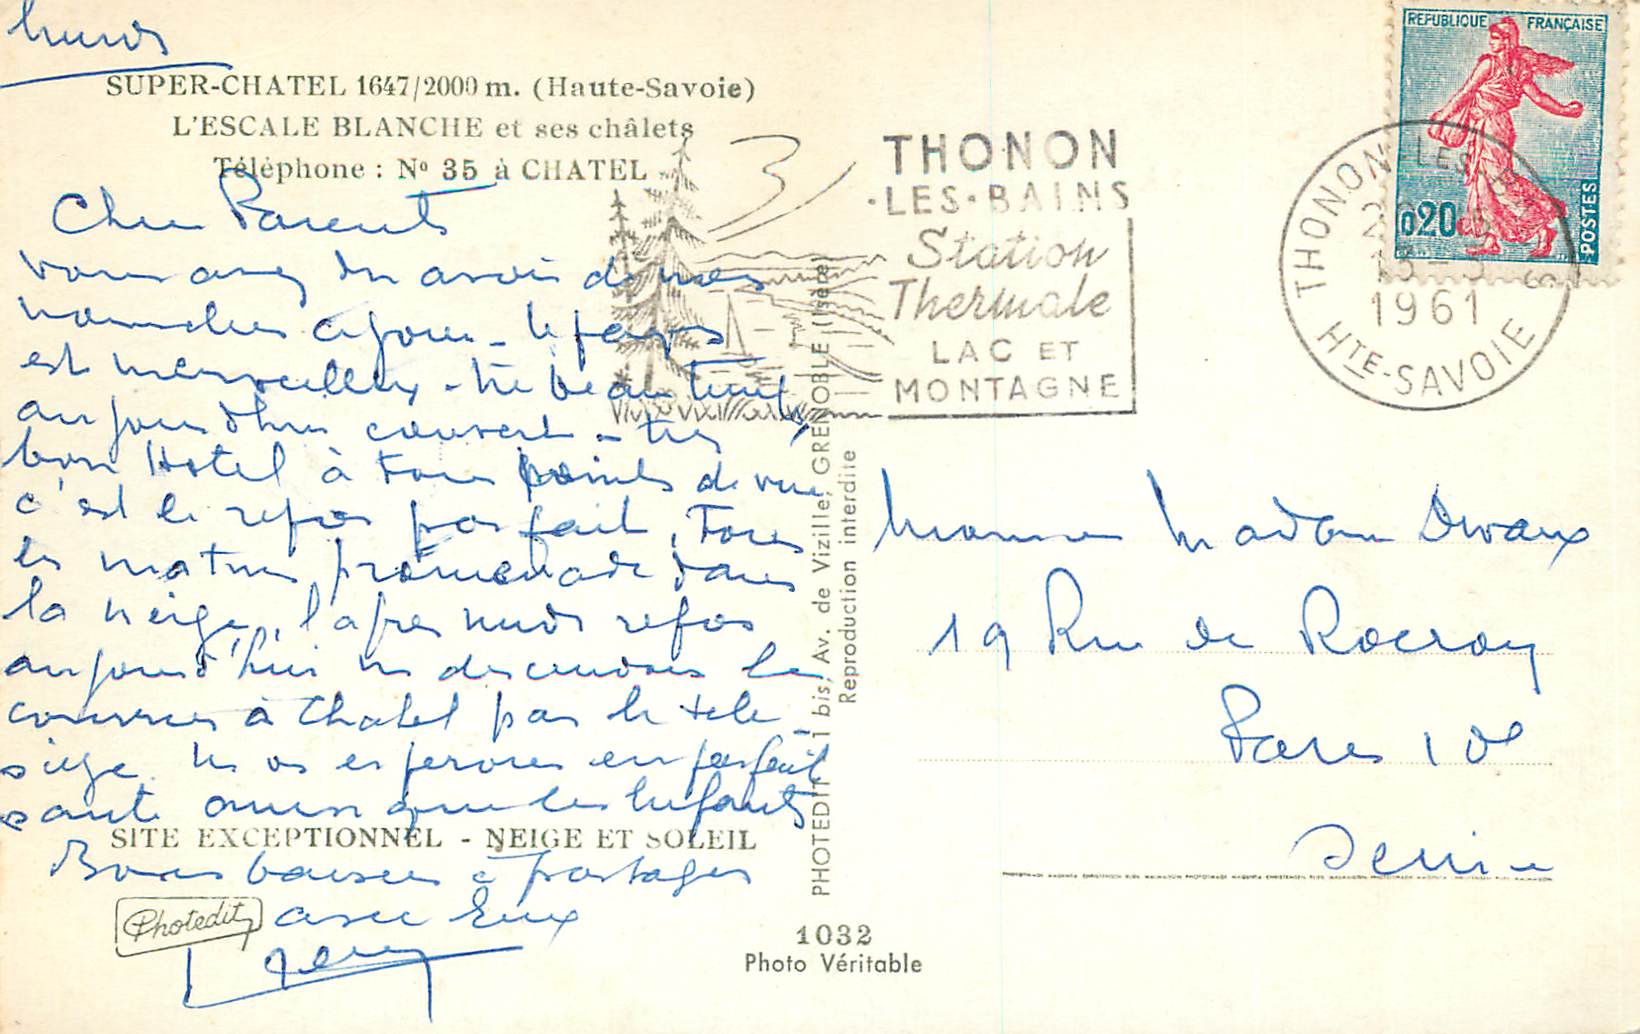 lundi
SUPER-CHATEL 1647/2000 m. (Haute-Savoie)
L'ESCALE BLANCHE et ses châlets
Téléphone : No 35 à CHATEL
Chers Parents
vous avez du avoir de nos
nouvelles ce jour - le pays
est merveilleux - très beau temps,
aujourd'hui couvert - très
bon Hotel à tous points de vue
c'est le repos parfait, tous
les matins promenade dans
la neige, l'après midi repos
aujourd'hui ns descendons les
courses à Chatel par le télé
siège. Ns vs espérons en parfaite
santé ainsi que les enfants
SITE EXCEPTIONNEL - NEIGE ET SOLEIL
Bons baisers à partager
avec Eux
Photedit
PHOTEDIT 1 bis, Av. de Vizille, GRENOBLE (Isère)
Reproduction interdite
1032
Photo Véritable
THONON
·LES·BAINS
Station
Thermale
LAC ET
MONTAGNE
REPUBLIQUE FRANÇAISE
0,20
POSTES
THONON LES BAINS
1961
HTE-SAVOIE
Monsieur Madame
19 Rue de Rocroy
Paris 10e
Seine